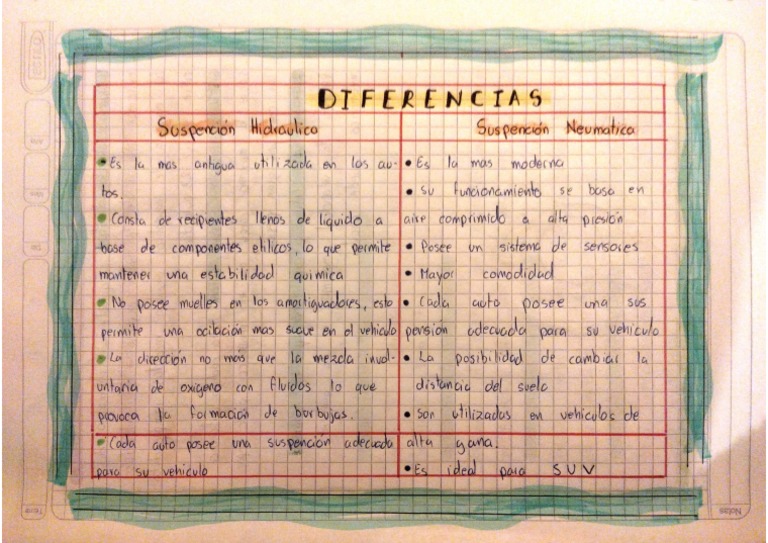 DIFERENCIAS
Suspención Hidraulica
• Es la mas antigua utilizada en los au-
tos.
• Consta de recipientes llenos de liquido a
base de componentes etilicos, lo que permite
mantener una estabilidad quimica
• No posee muelles en los amortiguadores, esto
permite una ocilación mas suave en el vehiculo
• La dirección no más que la mezcla invol-
untaria de oxigeno con fluidos lo que
provoca la formación de borbujas.
• Cada auto posee una suspención adecuada
para su vehiculo
Suspención Neumatica
• Es la mas moderna
• Su funcionamiento se basa en
aire comprimido a alta presión
• Posee un sistema de sensores
• Mayor comodidad
• Cada auto posee una sus
pensión adecuada para su vehiculo
• La posibilidad de cambiar la
distancia del suelo
• Son utilizados en vehiculos de
alta gana.
• Es ideal para SUV
Notas